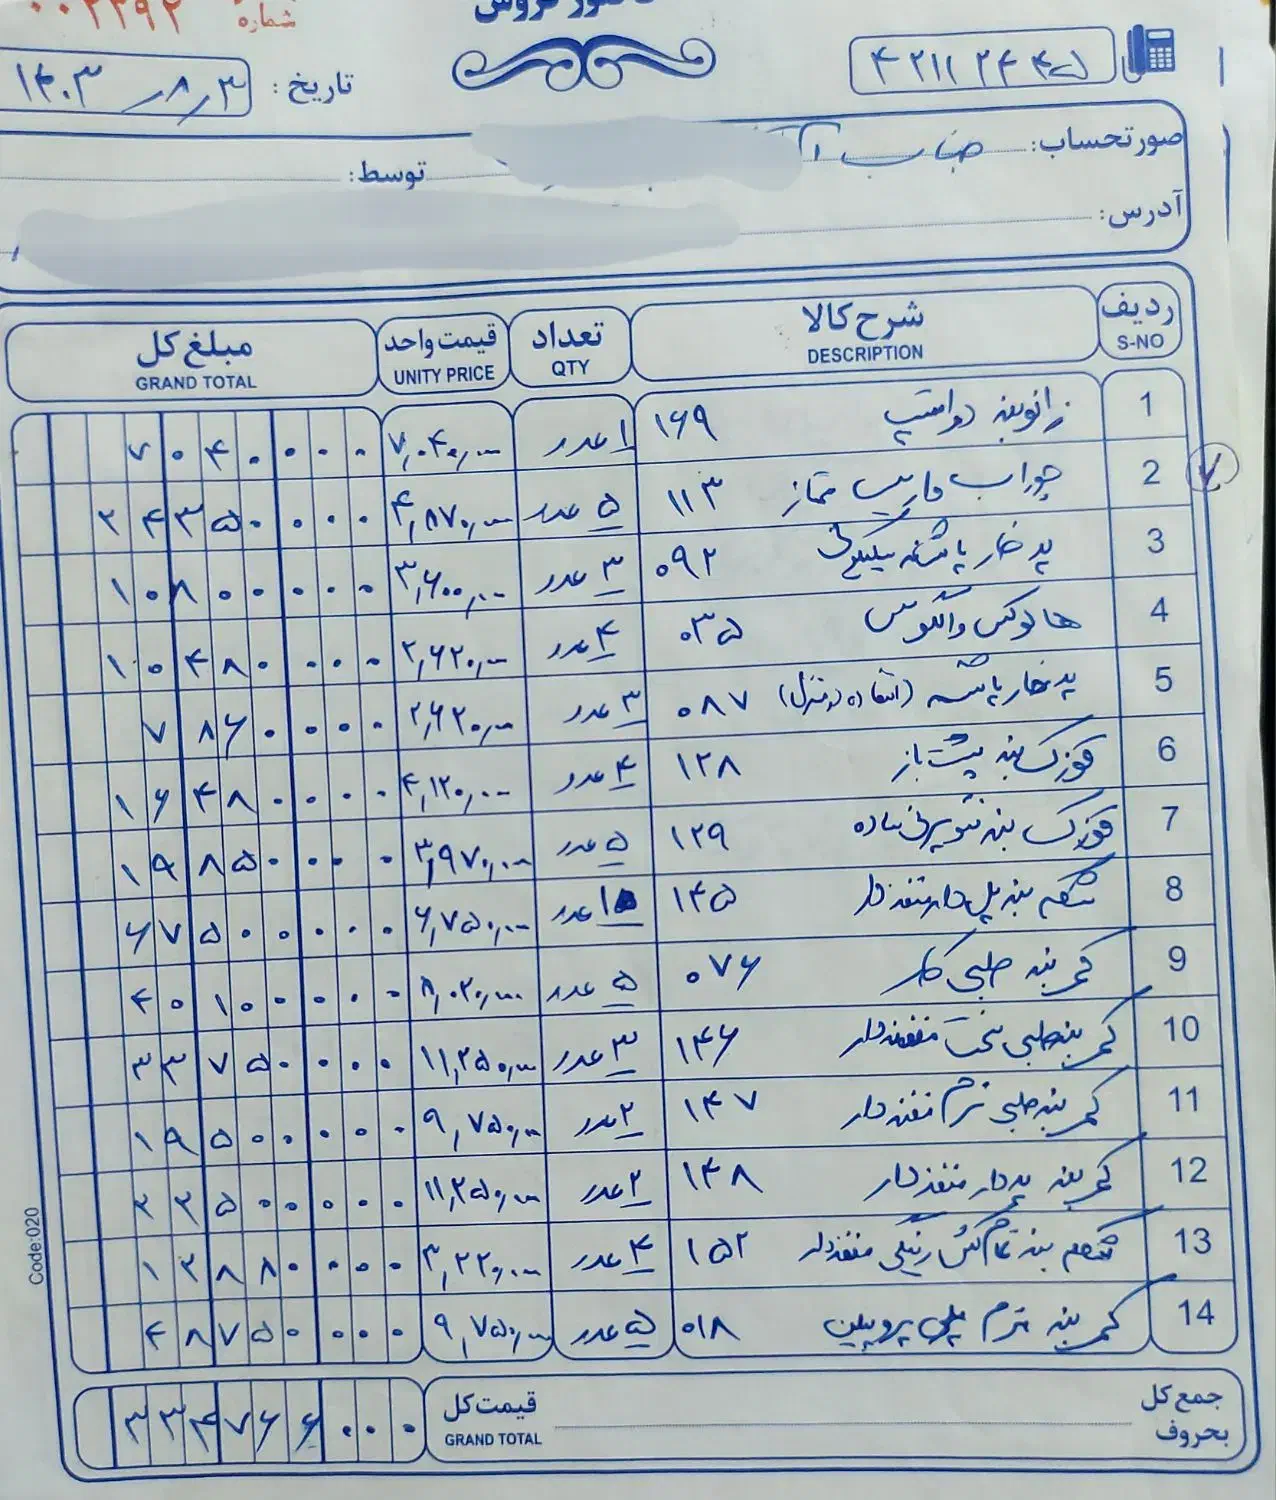 شماره ۰۰۲۲۹۲
تاریخ: ۱۴۰۳/۸/۳
۴۲۱۱۲۴۴۵
صورتحساب: جناب
توسط:
آدرس:
ردیف شرح کالا تعداد قیمت واحد مبلغ کل
S-NO DESCRIPTION QTY UNITY PRICE GRAND TOTAL
1 زانوبند دو استپ ۱۶۹ ۱ عدد ۷,۰۴۰,۰۰۰ ۷۰۴۰۰۰۰
2 جوراب واریس ممتاز ۱۱۳ ۵ عدد ۴,۸۷۰,۰۰۰ ۲۴۳۵۰۰۰۰
3 پد خار پاشنه سیلیکونی ۰۹۲ ۳ عدد ۳,۶۰۰,۰۰۰ ۱۰۸۰۰۰۰۰
4 هالوکس والگوس ۰۳۵ ۴ عدد ۲,۶۲۰,۰۰۰ ۱۰۴۸۰۰۰۰
5 پد خار پاشنه (استفاده در منزل) ۰۸۷ ۳ عدد ۲,۶۲۰,۰۰۰ ۷۸۶۰۰۰۰
6 قوزک بند پشت باز ۱۲۸ ۴ عدد ۴,۱۲۰,۰۰۰ ۱۶۴۸۰۰۰۰
7 قوزک بند نئوپرنی ساده ۱۲۹ ۵ عدد ۳,۹۷۰,۰۰۰ ۱۹۸۵۰۰۰۰
8 شکم بند پل دار منفذدار ۱۴۵ ۱ عدد ۶,۷۵۰,۰۰۰ ۶۷۵۰۰۰۰
9 کمربند طبی کار ۰۷۶ ۵ عدد ۸,۰۲۰,۰۰۰ ۴۰۱۰۰۰۰۰
10 کمربند طبی سخت منفذدار ۱۴۶ ۳ عدد ۱۱,۲۵۰,۰۰۰ ۳۳۷۵۰۰۰۰
11 کمربند طبی نرم منفذدار ۱۴۷ ۲ عدد ۹,۷۵۰,۰۰۰ ۱۹۵۰۰۰۰۰
12 کمربند پددار منفذدار ۱۴۸ ۲ عدد ۱۱,۲۵۰,۰۰۰ ۲۲۵۰۰۰۰۰
13 شکم بند تمام کش رینگی منفذدار ۱۵۲ ۴ عدد ۳,۲۲۰,۰۰۰ ۱۲۸۸۰۰۰۰
14 کمربند نرم پلی پروپیلن ۰۱۸ ۵ عدد ۹,۷۵۰,۰۰۰ ۴۸۷۵۰۰۰۰
جمع کل بحروف قیمت کل
GRAND TOTAL ۳۳۴۷۶۶۰۰۰
Code:020